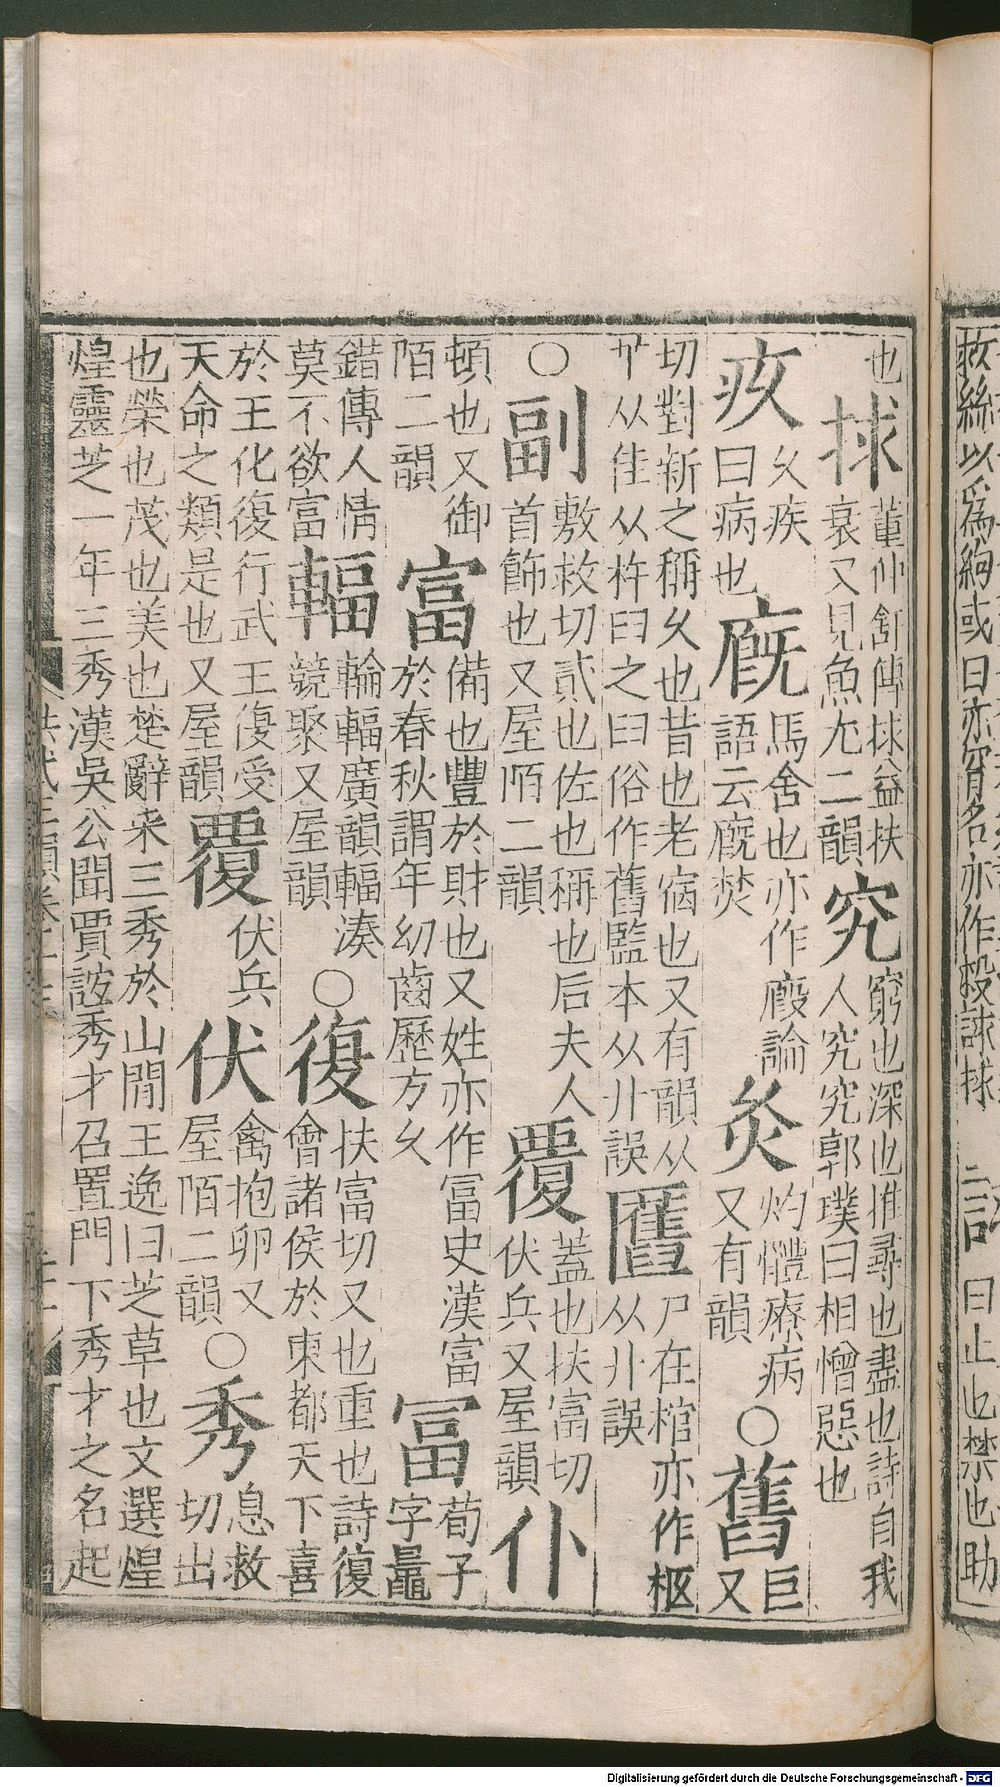 救絲以爲絇或曰亦
曰止也禁也助
也捄董仲舒傳捄益扶衰又見魚尤二韻究窮也深也推尋也盡也詩自我人究究郭璞曰相憎惡也
疚久疾曰病也廐馬舍也亦作廏論語云廐焚灸灼體療病又有韻○舊巨又
切對新之稱久也昔也老宿也又有韻从艹从隹从杵臼之臼俗作舊監本从廾誤匶尸在棺亦作柩从廾誤
○副敷救切貳也佐也稱也后夫人首飾也又屋陌二韻覆蓋也扶富切伏兵又屋韻仆
頓也又御陌二韻富備也豐於財也又姓亦作冨史漢富於春秋謂年幼齒歷方久冨荀子字鼂
錯傳人情莫不欲富輻輪輻廣韻輻湊競聚又屋韻○復扶富切又也重也詩復會諸侯於東都天下喜
於王化復行武王復受天命之類是也又屋韻覆伏兵伏禽抱卵又屋陌二韻○秀息救切出
也榮也茂也美也楚辭采三秀於山閒王逸曰芝草也文選煌
煌靈芝一年三秀漢吳公聞賈誼秀才召置門下秀才之名起
Digitalisierung gefördert durch die Deutsche Forschungsgemeinschaft - DFG